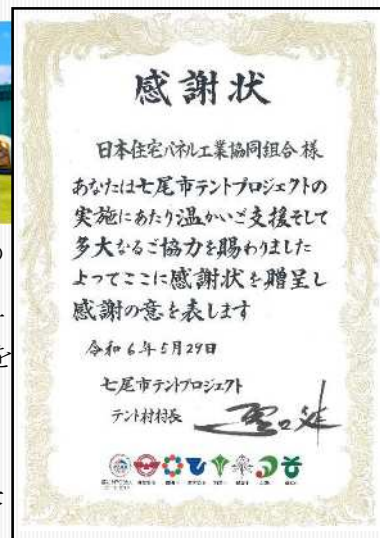 感謝状
日本住宅パネル工業協同組合 様
あなたは七尾市テントプロジェクトの
実施にあたり温かいご支援そして
多大なるご協力を賜わりました
よってここに感謝状を贈呈し
感謝の意を表します
令和6年5月29日
七尾市テントプロジェクト
テント村村長
の
を